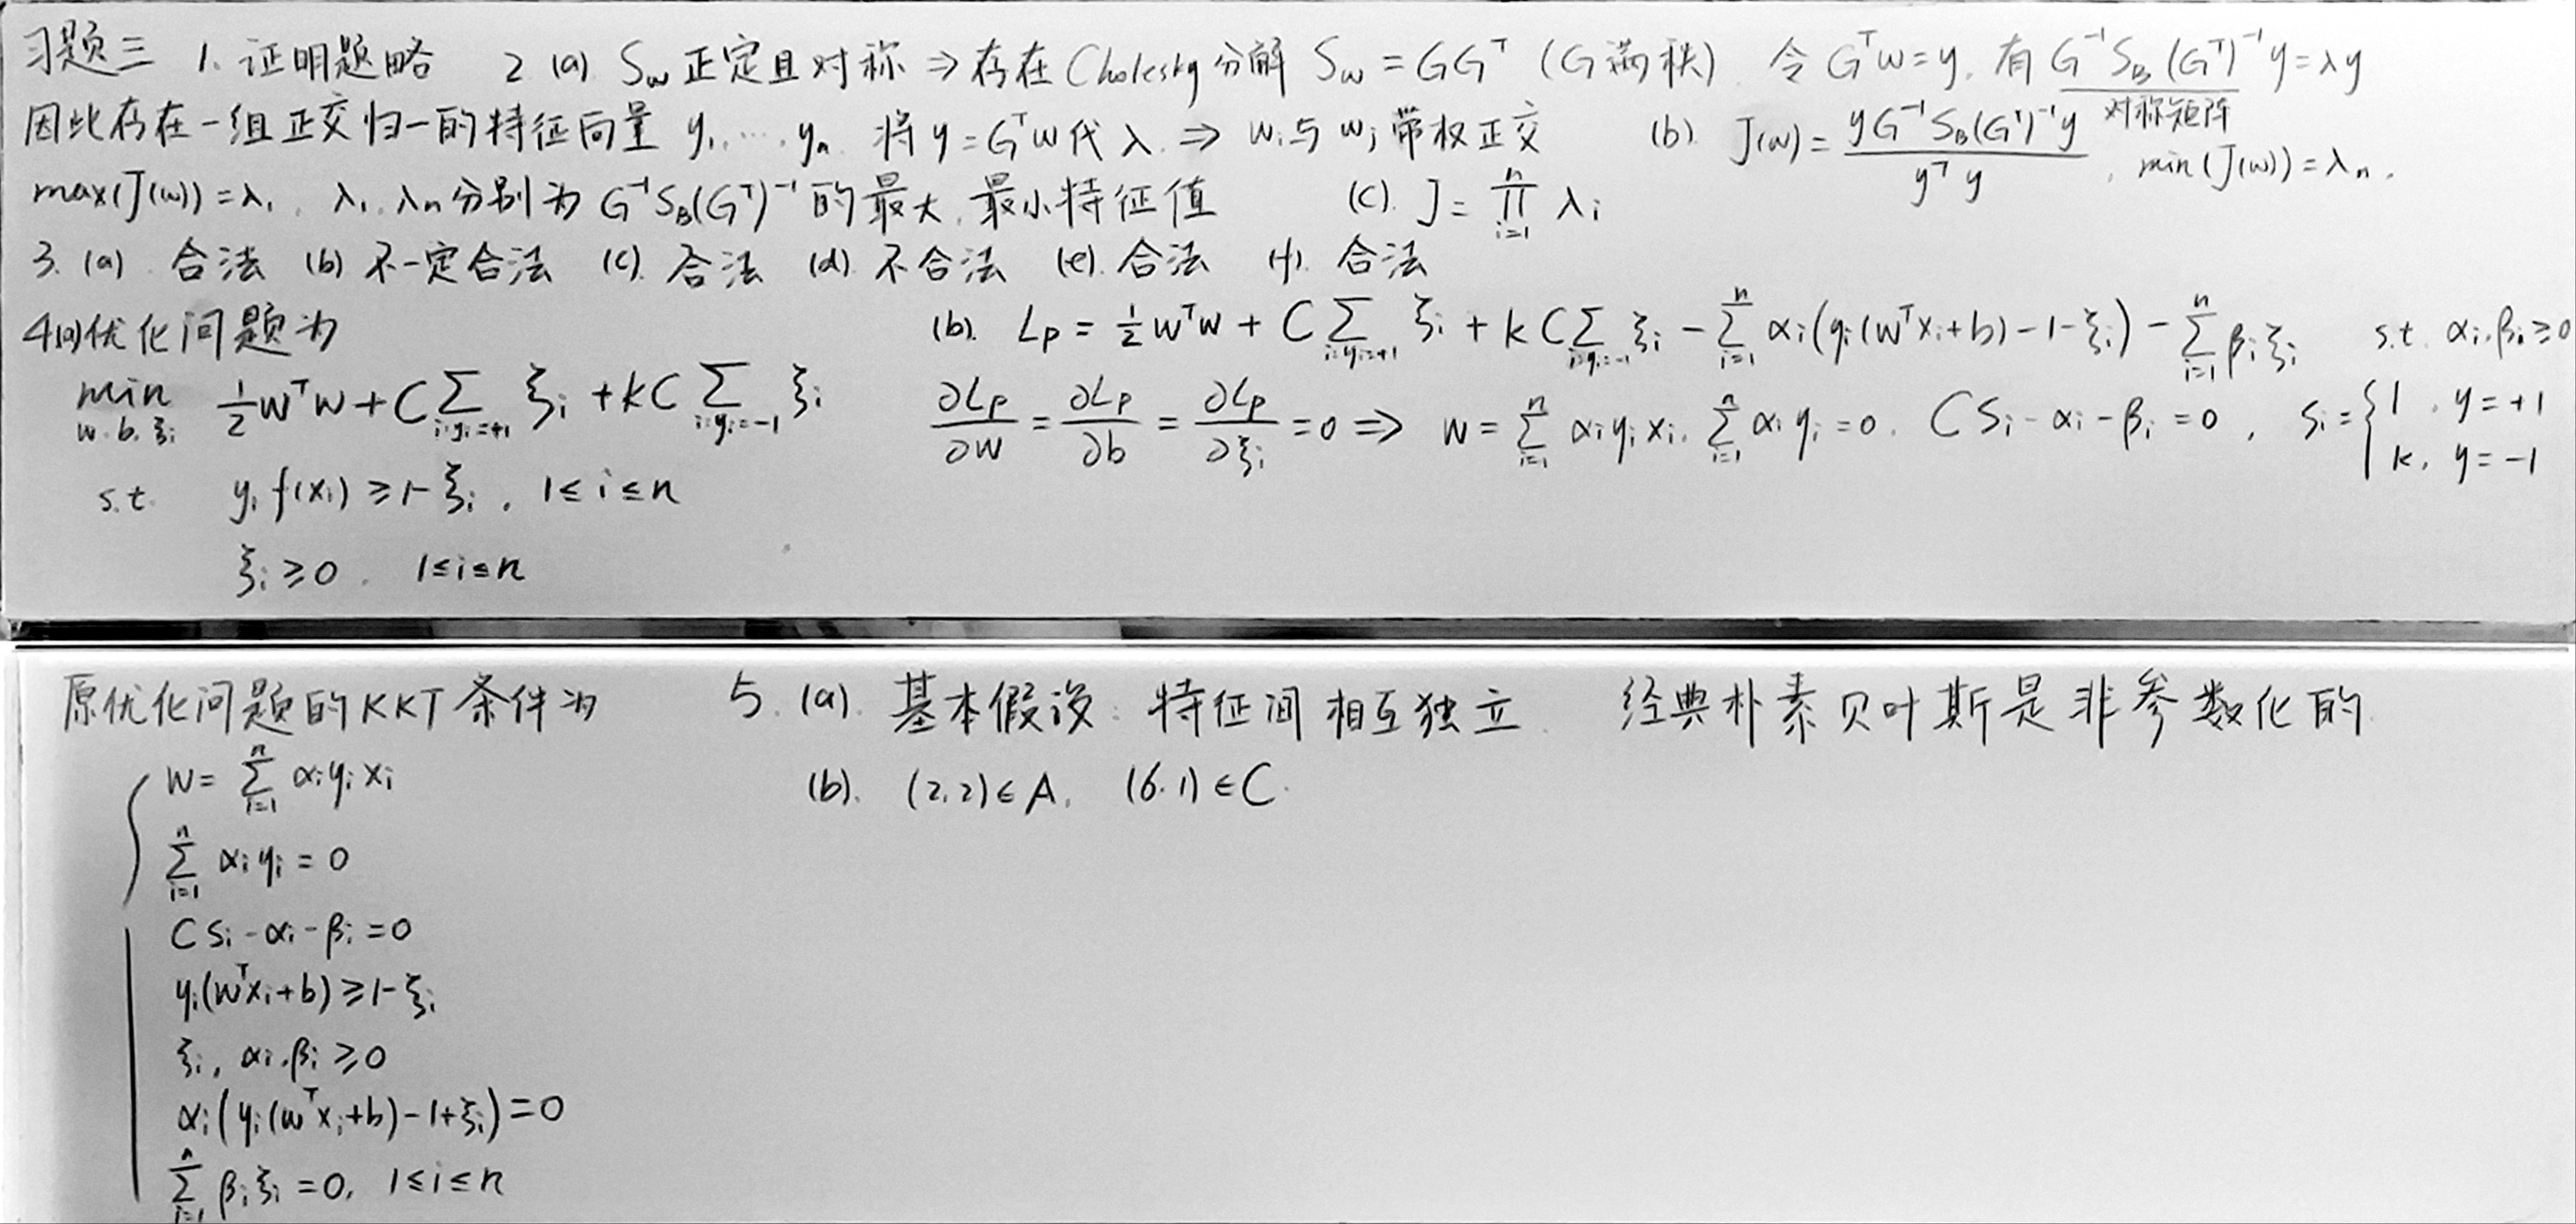 习题三 1. 证明题略 2 (a) S_w 正定且对称 ⇒ 存在 Cholesky 分解 S_w = GG^T (G满秩) 令 G^T w = y, 有 G^{-1} S_B (G^T)^{-1} y = λy
对称矩阵
因此存在一组正交归一的特征向量 y_1, ⋯ y_n 将 y = G^T w 代入 ⇒ w_i 与 w_j 带权正交 (b). J(w) = \frac{y G^{-1} S_B (G^T)^{-1} y}{y^T y}, min(J(w)) = λ_n.
max(J(w)) = λ_1, λ_1, λ_n 分别为 G^{-1} S_B (G^T)^{-1} 的最大, 最小特征值 (c). J = \prod_{i=1}^{n} λ_i
3. (a) 合法 (b) 不一定合法 (c). 合法 (d). 不合法 (e). 合法 (f). 合法
4(a)优化问题为
min_{w.b.ξ_i} \frac{1}{2} w^T w + C \sum_{i:y_i=+1} ξ_i + kC \sum_{i:y_i=-1} ξ_i
s.t. y_i f(x_i) ≥ 1 - ξ_i, 1 ≤ i ≤ n
ξ_i ≥ 0, 1 ≤ i ≤ n
(b). L_p = \frac{1}{2} w^T w + C \sum_{i:y_i=+1} ξ_i + kC \sum_{i:y_i=-1} ξ_i - \sum_{i=1}^{n} α_i (y_i (w^T x_i + b) - 1 - ξ_i) - \sum_{i=1}^{n} β_i ξ_i s.t. α_i, β_i ≥ 0
\frac{∂L_p}{∂w} = \frac{∂L_p}{∂b} = \frac{∂L_p}{∂ξ_i} = 0 ⇒ w = \sum_{i=1}^{n} α_i y_i x_i, \sum_{i=1}^{n} α_i y_i = 0, C S_i - α_i - β_i = 0, S_i = { 1, y = +1
k, y = -1
原优化问题的KKT条件为
w = \sum_{i=1}^{n} α_i y_i x_i
\sum_{i=1}^{n} α_i y_i = 0
C S_i - α_i - β_i = 0
y_i (w^T x_i + b) ≥ 1 - ξ_i
ξ_i, α_i, β_i ≥ 0
α_i (y_i (w^T x_i + b) - 1 + ξ_i) = 0
\sum_{i=1}^{n} β_i ξ_i = 0, 1 ≤ i ≤ n
5. (a). 基本假设: 特征间相互独立 经典朴素贝叶斯是非参数化的.
(b). (2,2) ∈ A, (6,1) ∈ C.